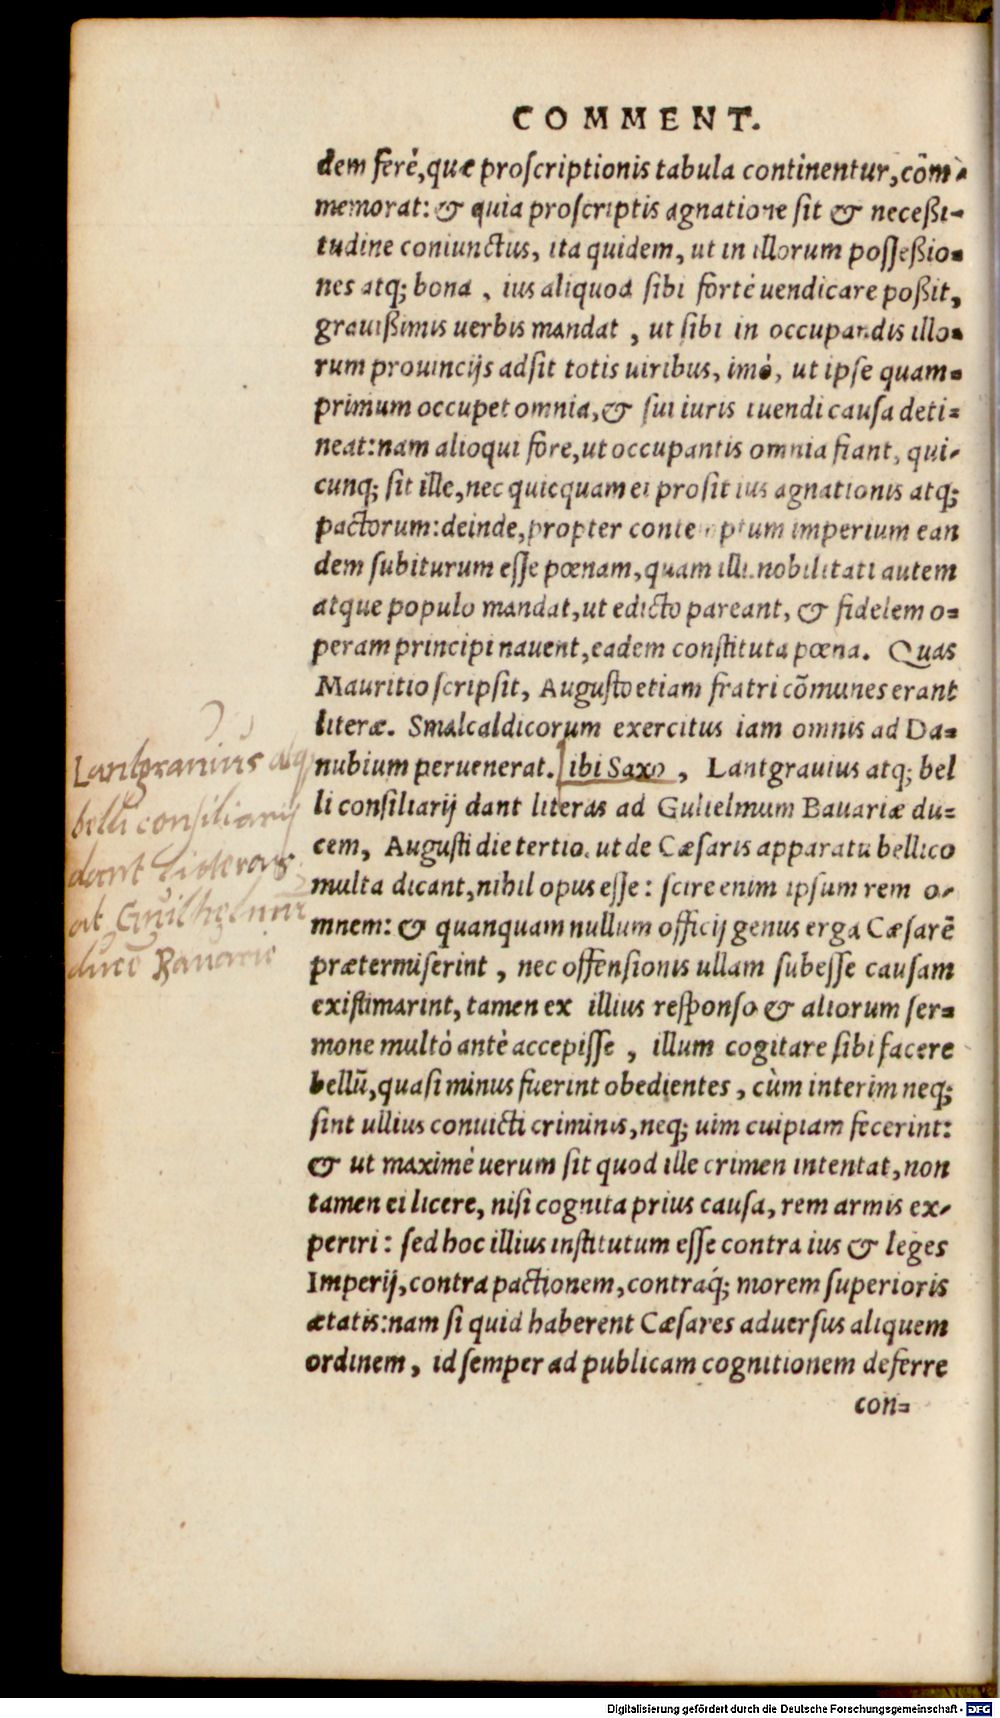 COMMENT.
dem ferè, quæ proſcriptionis tabula continentur, cõm-
memorat: & quia proſcriptis agnatione ſit & neceßi-
tudine coniunctus, ita quidem, ut in illorum poſſeßio-
nes atq; bona, ius aliquod ſibi fortè uendicare poßit,
grauißimis uerbis mandat, ut ſibi in occupandis illo-
rum prouincijs adſit totis uiribus, imò, ut ipſe quam-
primum occupet omnia, & ſui iuris tuendi cauſa deti-
neat: nam alioqui fore, ut occupantis omnia fiant, qui-
cunq; ſit ille, nec quicquam ei proſit ius agnationis atq;
pactorum: deinde, propter contemptum imperium ean
dem ſubiturum eſſe pœnam, quam illi. nobilitati autem
atque populo mandat, ut edicto pareant, & fidelem o-
peram principi nauent, eadem conſtituta pœna. Quas
Mauritio ſcripſit, Auguſto etiam fratri cõmunes erant
literæ. Smalcaldicorum exercitus iam omnis ad Da-
nubium peruenerat. ibi Saxo, Lantgrauius atq; bel
li conſiliarij dant literas ad Gulielmum Bauariæ du-
cem, Auguſti die tertio. ut de Cæſaris apparatu bellico
multa dicant, nihil opus eſſe: ſcire enim ipſum rem o-
mnem: & quanquam nullum officij genus erga Cæſarẽ
prætermiſerint, nec offenſionis ullam ſubeſſe cauſam
exiſtimarint, tamen ex illius reſponſo & aliorum ſer-
mone multò antè accepiſſe, illum cogitare ſibi facere
bellũ, quaſi minus fuerint obedientes, cùm interim neq;
ſint ullius conuicti criminis, neq; uim cuipiam fecerint:
& ut maximè uerum ſit quod ille crimen intentat, non
tamen ei licere, niſi cognita prius cauſa, rem armis ex-
periri: ſed hoc illius inſtitutum eſſe contra ius & leges
Imperij, contra pactionem, contraq́; morem ſuperioris
ætatis: nam ſi quid haberent Cæſares aduerſus aliquem
ordinem, id ſemper ad publicam cognitionem deferre
con-
Lantgrauius atq
belli consiliarij
dant literas
ad Guilhelmũ
ducẽ Bauarie
Digitalisierung gefördert durch die Deutsche Forschungsgemeinschaft - DFG